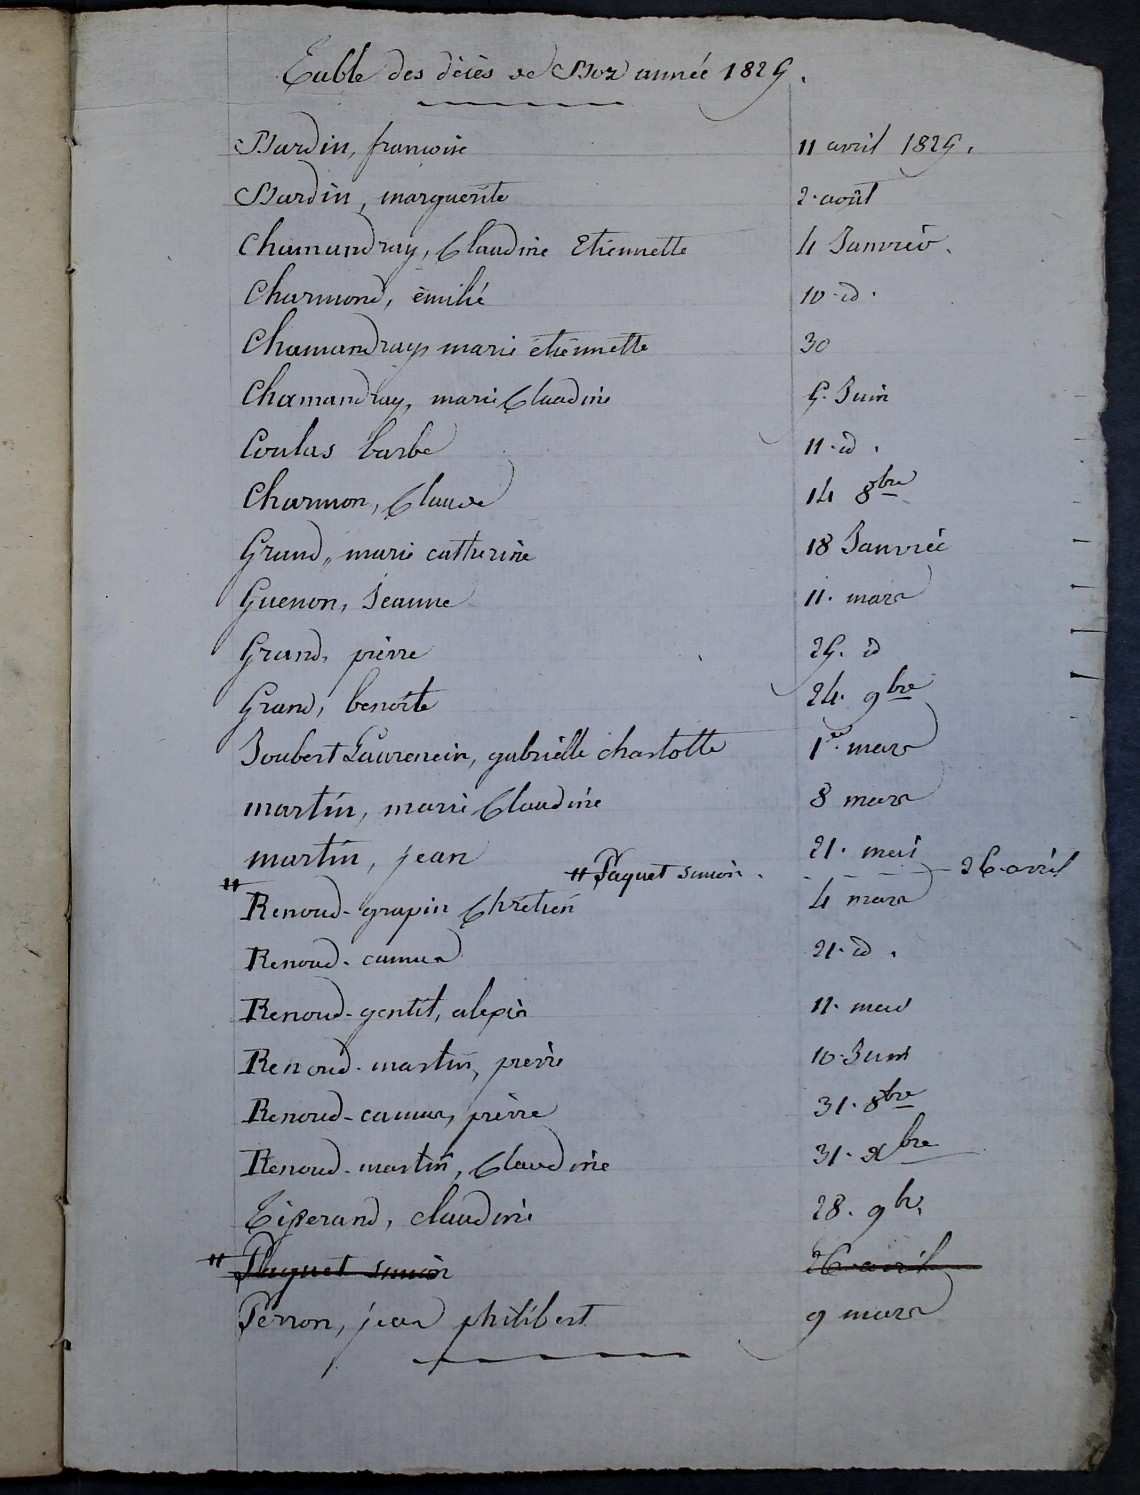 Table des décès de Boz année 1825.
Bardin, francoise 11 avril 1825.
Bardin, marguerite 2. août
Chamandray, Claudine Etiennette 4 Janvier.
Charmond, émilie 10. id.
Chamandray, marie étiennette 30
Chamandray, marie Claudine 5. Juin
Coulas barbe 11. id.
Charmon, Claude 14 8bre
Grand, marie catherine 18 Janvier
Guenon, Jeanne 11. mars
Grand, pièrre 25. id
Grand, benoîte 24. 9bre
Joubert Laurencin, gabrielle charlotte 1er. mars
martin, marie Claudine 8 mars
martin, jean 21. mai
" Paquet simon. - - - - 26 avril
" Renoud-grapin Chrétien 4 mars
Renoud-camus 21. id.
Renoud-gentil, alexis 11. mai
Renoud-martin, pierre 10. Juin
Renoud-camus, pièrre 31. 8bre
Renoud-martin, Claudine 31. Xbre
Tisserand, claudine 28. 9br.
" Paquet simon 26 avril
Perron, jean philibert 9 mars